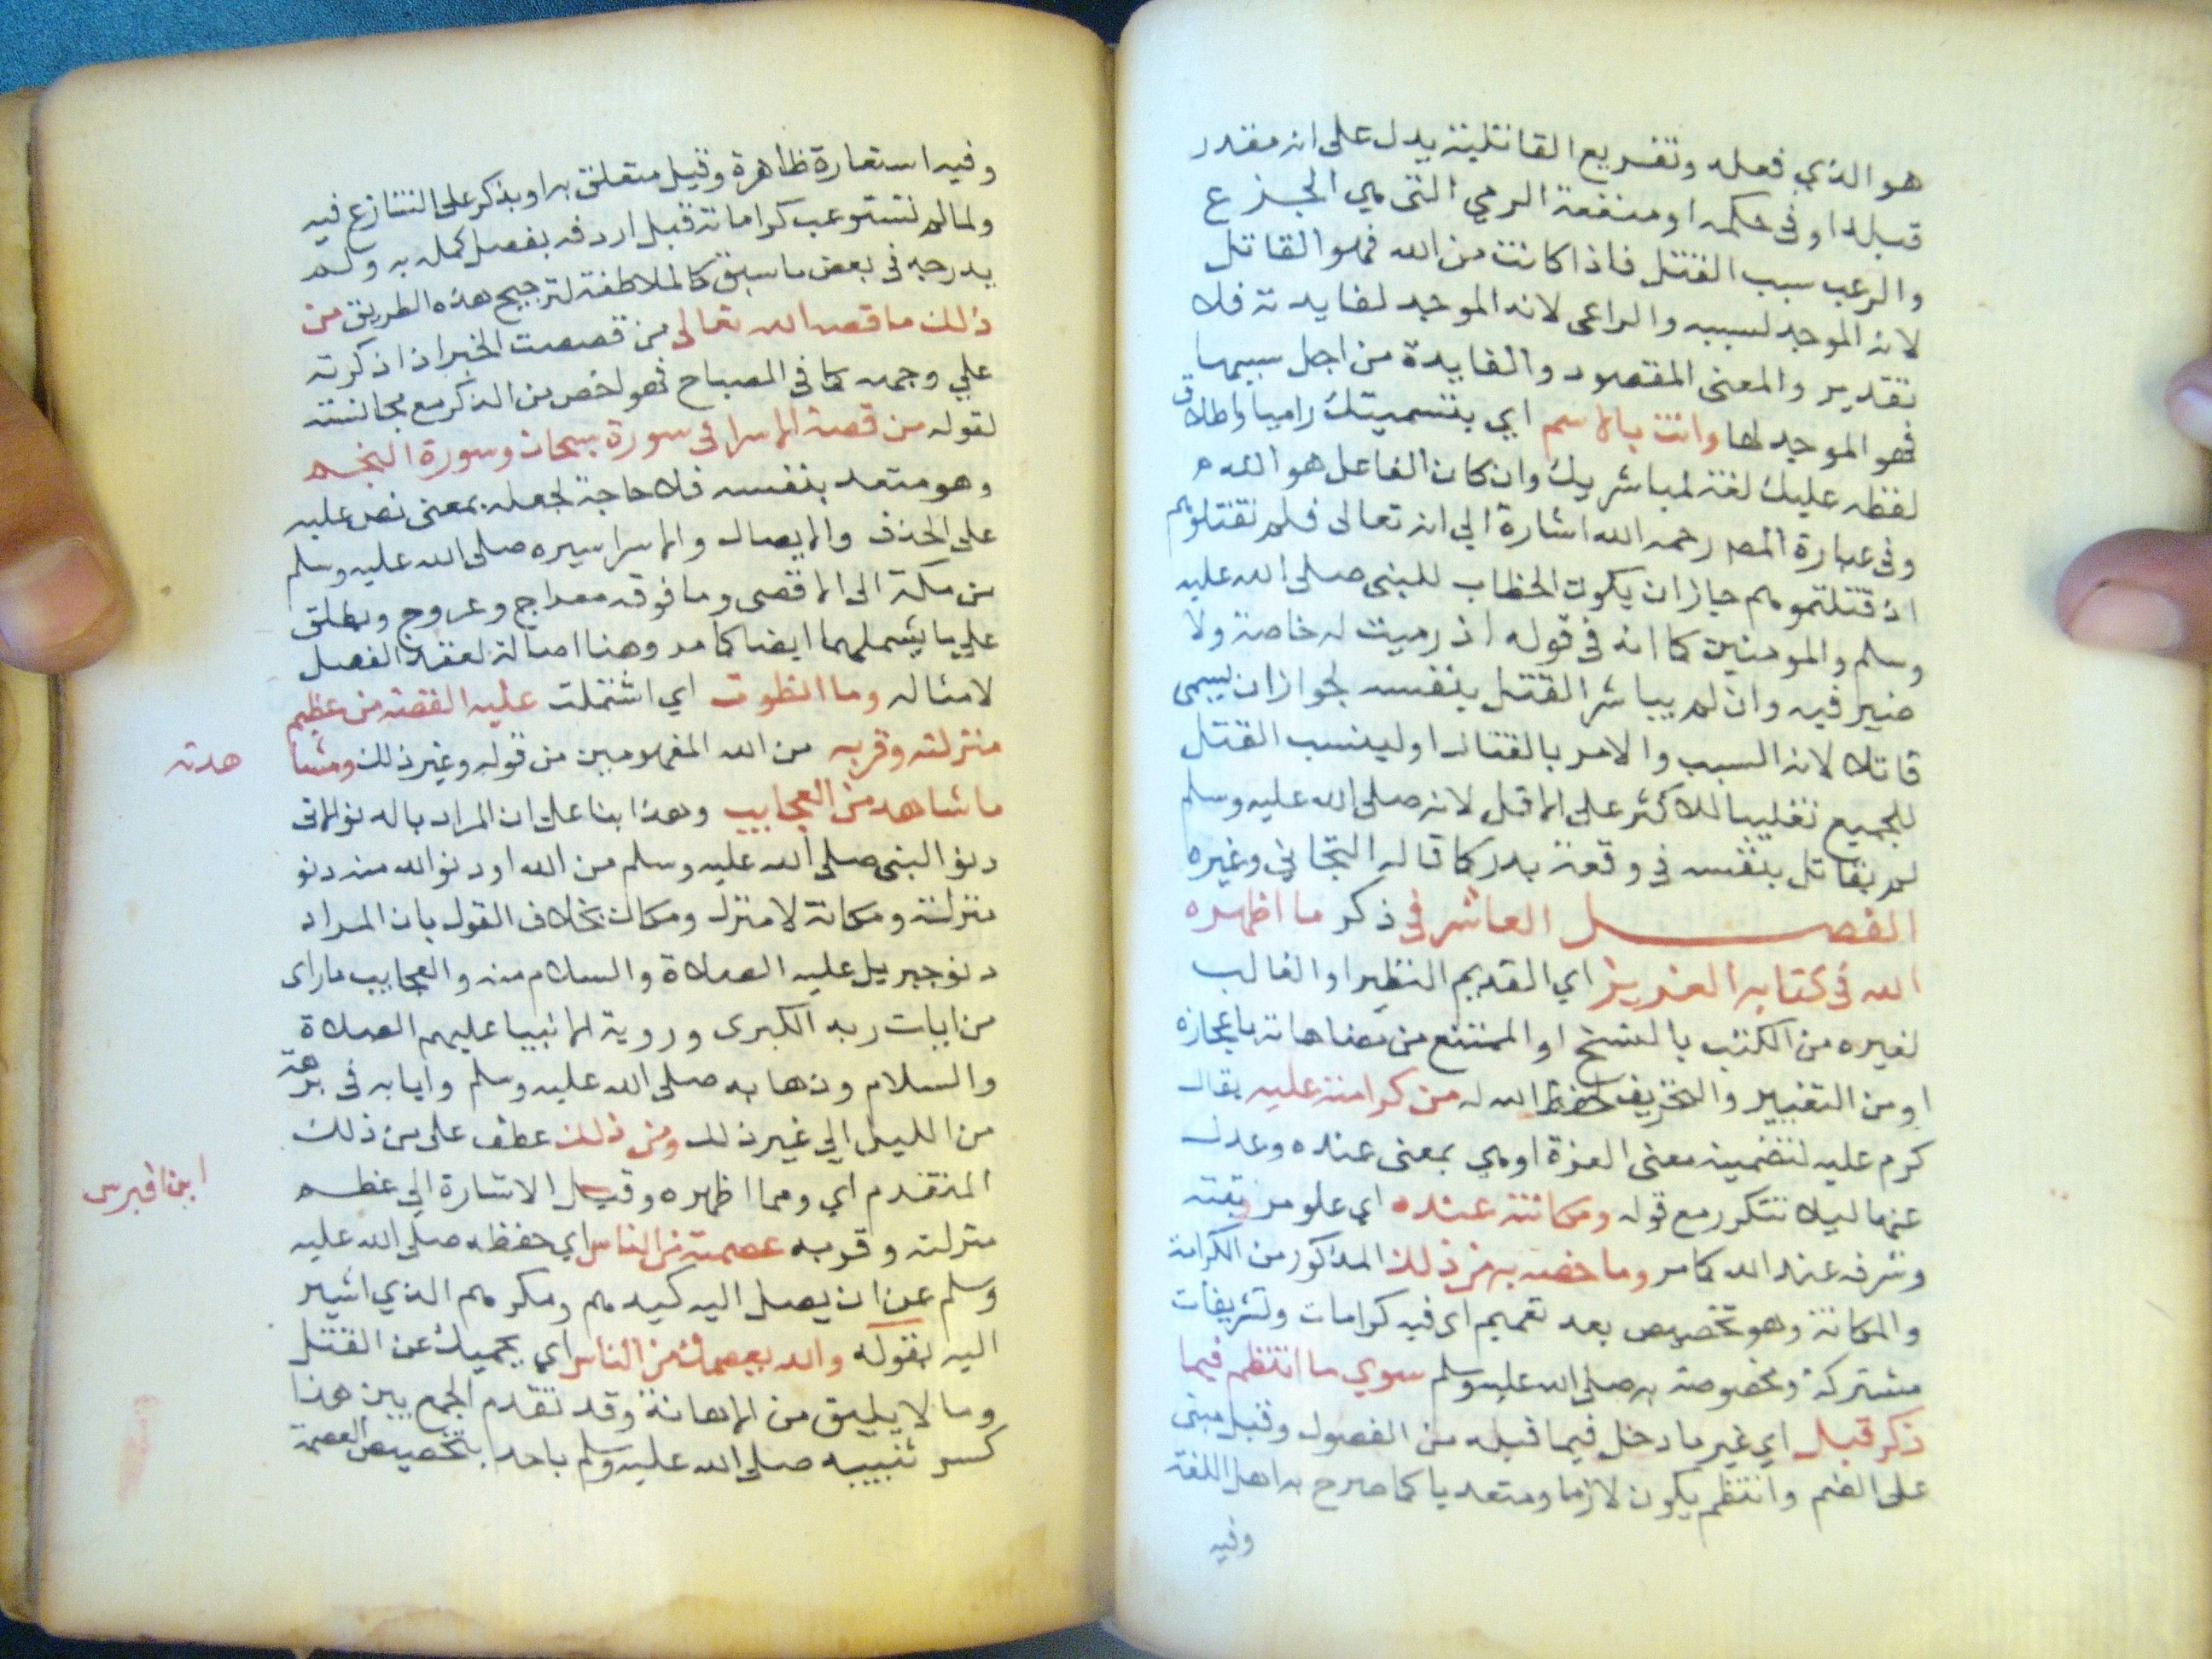 هو الذي فعله وتفريع القاتلية يدل على انه مقدر
قبله او في حكمه او منفعة الرمي التي هي الجزع
والرعب سبب القتل فاذا كانت من الله فهو القاتل
لانه الموجد لسببه والراعى لانه الموجد لفايدته فلا
تقدير والمعنى المقصود والفايدة من اجل سببها
فهو الموجد لها وانت بالاسم اي بتسميتك راميا واطلاق
لفظه عليك لغة لمباشرتك وان كان الفاعل هو الله
وفي عبارة المص رحمه الله اشارة الي انه تعالى فلم تقتلوهم
اذ قتلتموهم جاز ان يكون الخطاب للنبى صلى الله عليه
وسلم والمومنين كما انه في قوله اذ رميت له خاصة ولا
ضير فيه وان لم يباشر القتل بنفسه لجواز ان يسمى
قاتلا لانه السبب والامر بالقتال او لينسب القتل
للجميع تغليبا للاكثر على الاقل لانه صلى الله عليه وسلم
لم يقاتل بنفسه في وقعة بدر كما قاله التجاني وغيره
الفصل العاشر في ذكر ما اظهره
الله في كتابه العزيز اي القديم النظير او الغالب
لغيره من الكتب بالنسخ او الممتنع من مضاهاته باعجازه
او من التغيير والتحريف لحفظ الله له من كرامته عليه يقال
كرم عليه لتضمينه معنى العزة او هي بمعنى عنده وعدل
عنها ليلا تتكرر مع قوله ومكانته عنده اي علو مرتبته
وشرفه عند الله كما مر وما خصه به من ذلك المذكور من الكرامة
والمكانة وهو تخصيص بعد تعميم اى فيه كرامات وتشريفات
مشتركة ومخصوصة به صلى الله عليه وسلم سوي ما انتظم فيما
ذكر قبل اي غير ما دخل فيما قبله من الفصول وقبل مبنى
على الضم وانتظم يكون لازما ومتعديا كما صرح به اهل اللغة
وفيه
وفيه استعارة ظاهرة وقيل متعلق به او بذكر على التنازع فيه
ولما لم تستوعب كراماته قبل اردفه بفصل كمله به ولم
يدرجه في بعض ما سبق كالملاطفة لترجيح هذه الطريق من
ذلك ما قصه الله تعالى من قصصت الخبر اذا ذكرته
علي وجهه كما في المصباح فهو اخص من الذكر مع مجانسته
لقوله من قصة الاسرا في سورة سبحان وسورة النجم
وهو متعد بنفسه فلا حاجة لجعله بمعنى نص عليه
على الحذف والايصال والاسرا سيره صلى الله عليه وسلم
من مكة الى الاقصى وما فوقه معراج وعروج ويطلق
على ما يشملهما ايضا كما مر وهنا اصالة لعقد الفصل
لامثاله وما انطوت اي اشتملت عليه القصة من عظيم
منزلته وقربه من الله المفهومين من قوله وغير ذلك ومشا
هدته
ما شاهد من العجايب وهذا بنا على ان المراد بالدنو الاتى
دنو النبى صلى الله عليه وسلم من الله او دنو الله منه دنو
منزلة ومكانة لا منزل ومكان بخلاف القول بان المراد
دنو جبريل عليه الصلاة والسلام منه والعجايب ما راى
من ايات ربه الكبرى وروية الانبيا عليهم الصلاة
والسلام وذهابه صلى الله عليه وسلم وايابه في برهة
من الليل الي غير ذلك ومن ذلك عطف على من ذلك
المتقدم اي ومما اظهره وقيل الاشارة الي عظم
ابن اقبرس
منزلته وقربه عصمته من الناس اي حفظه صلى الله عليه
وسلم عن ان يصل اليه كيدهم ومكرهم الذي اشير
اليه بقوله والله يعصمك من الناس اي يحميك عن القتل
وما لا يليق من الاهانة وقد تقدم الجمع بين هذا
كسر ثنيته صلى الله عليه وسلم باحد بتخصيص العصمة